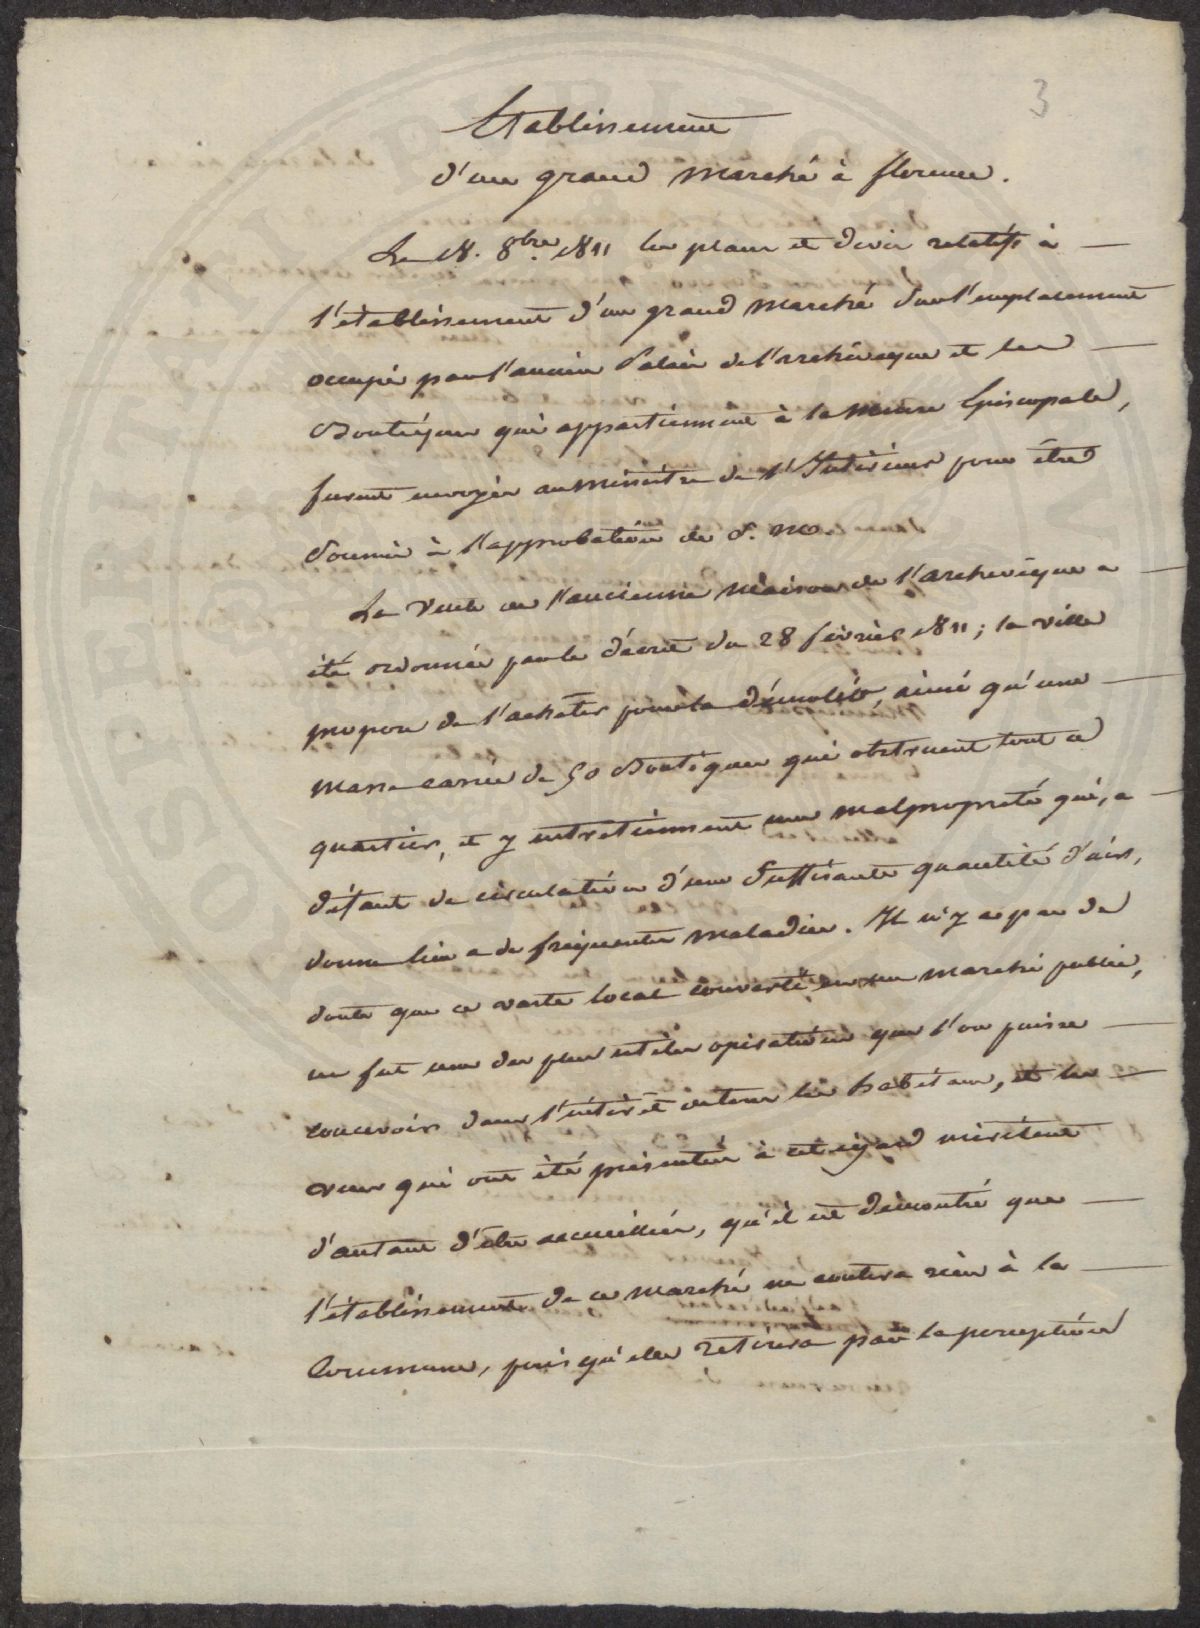 3
Etablissement
d'un grand Marché à florence.
Le 18. 8bre 1811 les plans et devis relatifs à
l'établissement d'un grand Marché sur l'emplacement
occupé par l'ancien Palais de l'archévêque et les
Boutiques qui appartiennent à la Mense Episcopale,
furent envoyés au Ministre de l'Intérieur pour être
soumis à l'approbation de S. M.
La Vente de l'ancienne Maison de l'archevêque a
été ordonnée par le décret du 28 février 1811; la ville
propose de l'acheter pour la démolir, ainsi qu'une
Masse carrée de 50 Boutiques qui obstruent tout ce
quartier, et y entretiennent une malpropreté qui, a
défaut de circulation d'une suffisante quantité d'air,
donne lieu a de fréquentes Maladies. Il n'y a pas de
doute que ce vaste local converti en un marché public,
ne fut une des plus utiles opérations que l'on puisse
concevoir dans l'intérêt de tous les habitans, et les
vues qui ont été présentées à cet égard méritent
d'autant d'être accueillies, qu'il est démontré que
l'établissement de ce marché ne coutera rien à la
Commune, puisqu'elle retirera par la perception